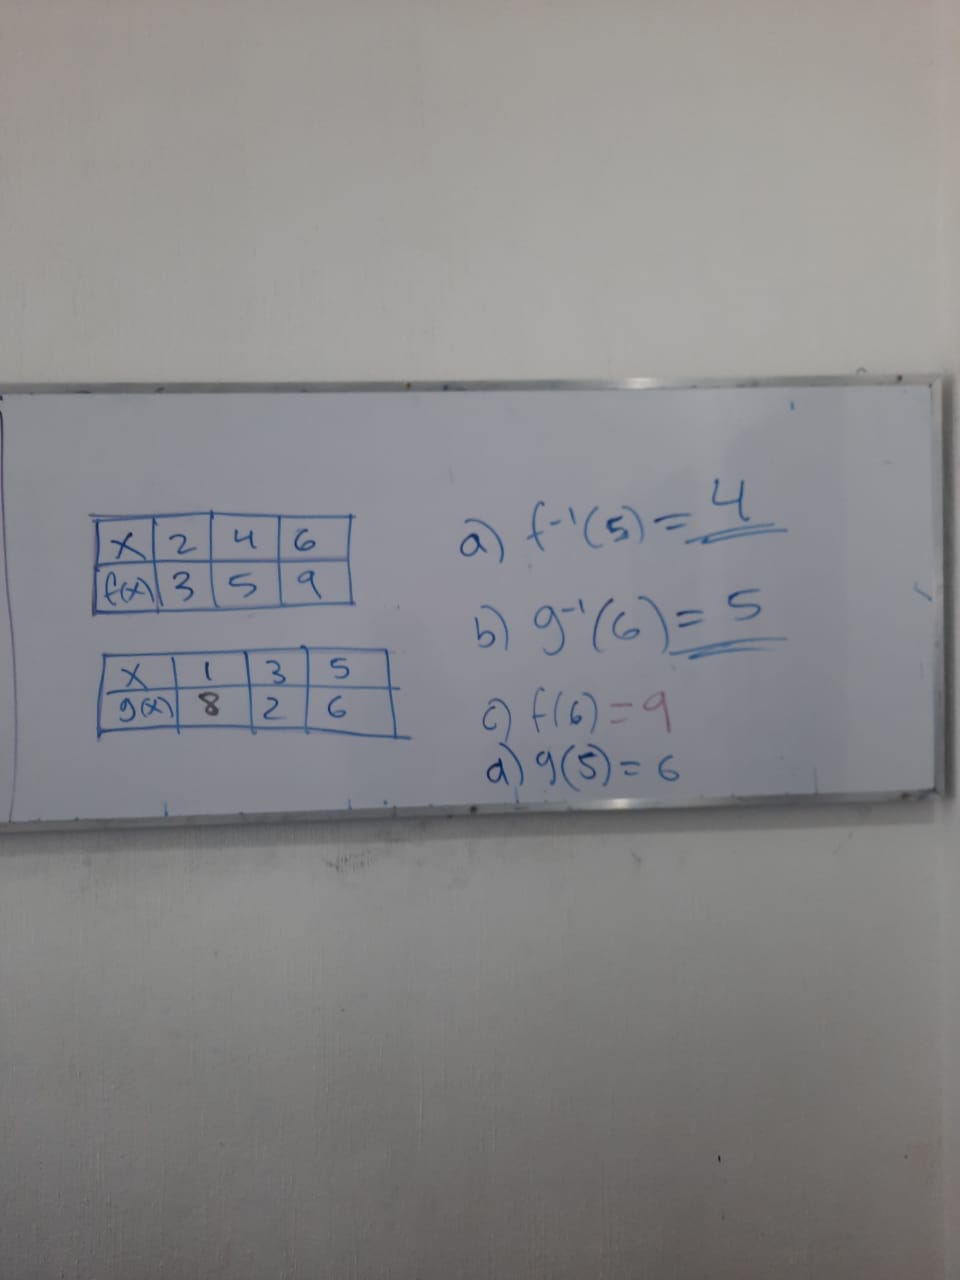 x 2 4 6
f(x) 3 5 9
x 1 3 5
g(x) 8 2 6
a) f⁻¹(5) = 4
b) g⁻¹(6) = 5
c) f(6) = 9
d) g(5) = 6